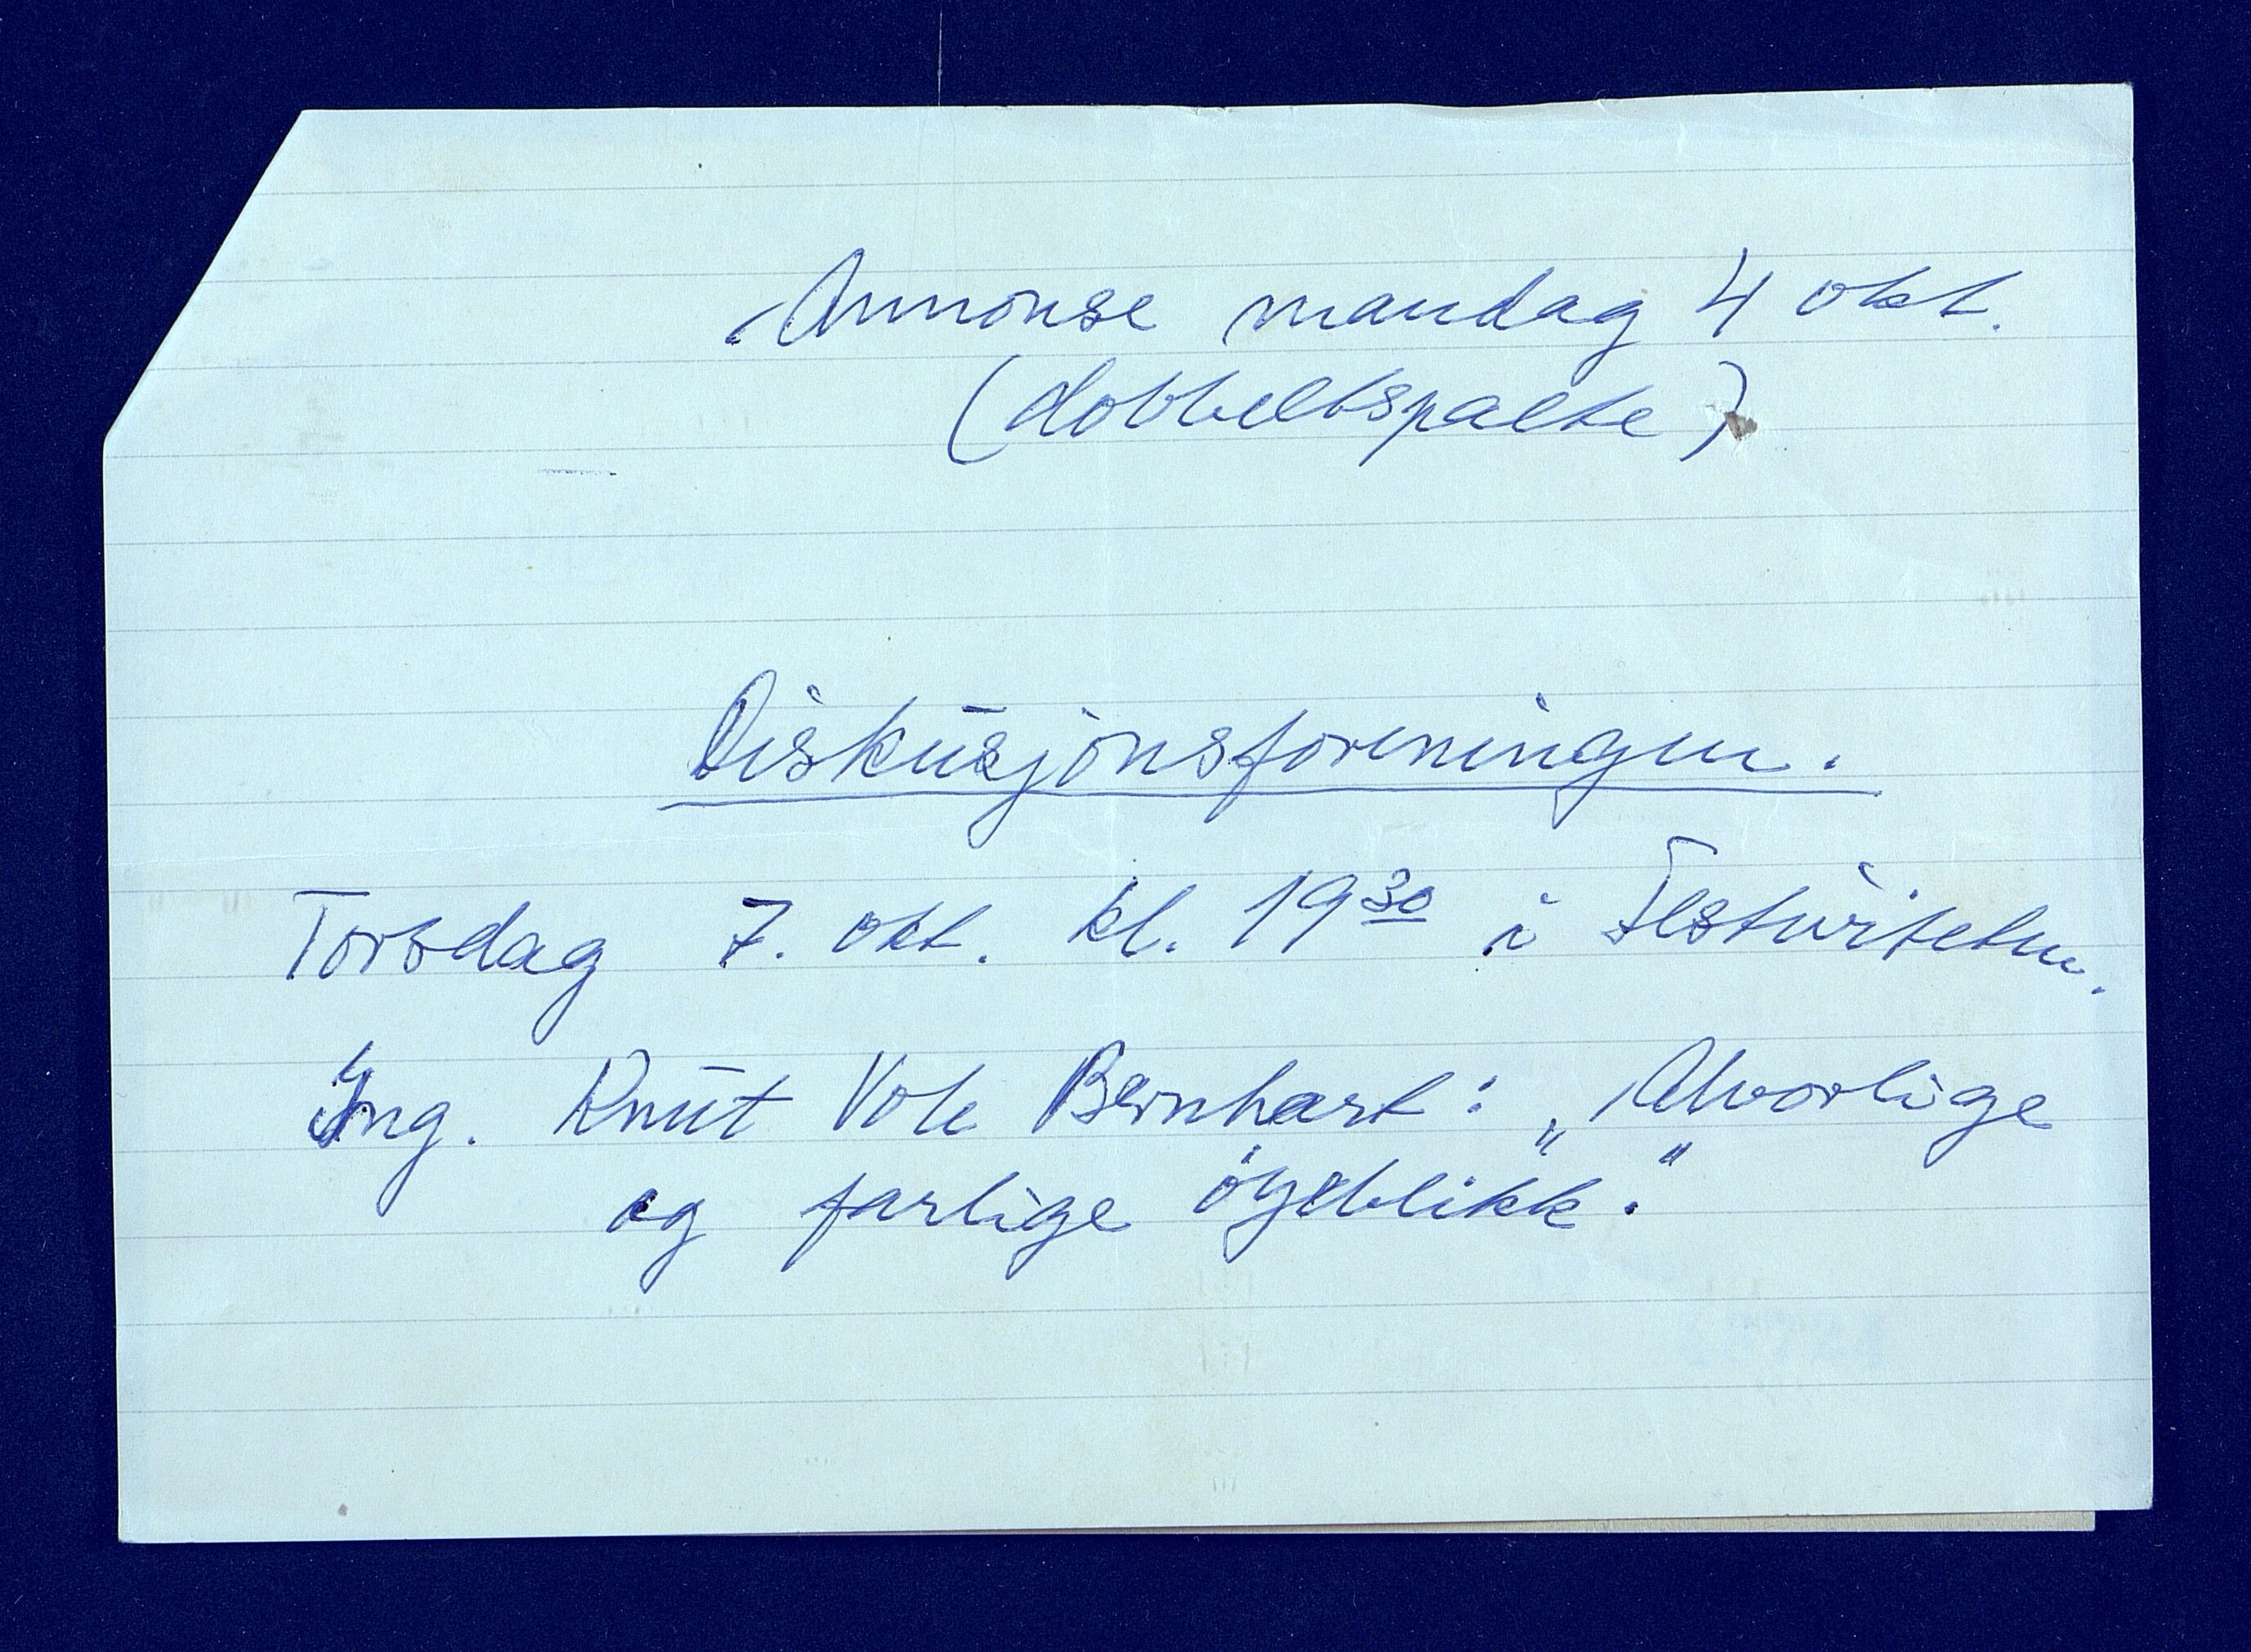 Annonse mandag 4 okt.
(dobbeltspalte)
Diskusjonsforeningen.
Torsdag 7. okt. kl. 19 30 i Festiviteten.
Ing. Knut Vole Bernhart: „Alvorlige
og farlige öyeblikk."